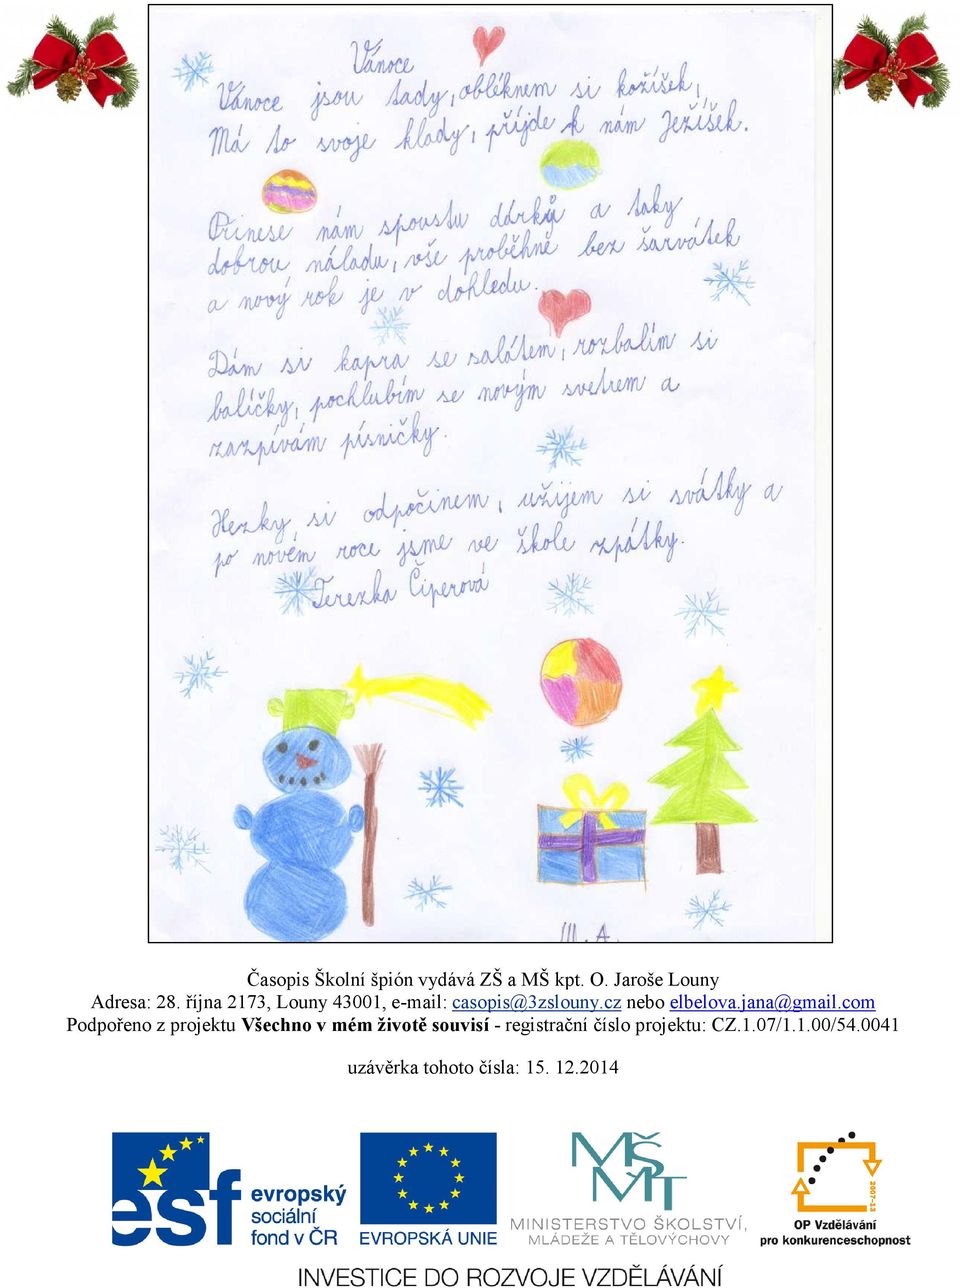 Vánoce
Vánoce jsou tady, obléknem si kožíšek,
Má to svoje klady, příjde k nám Ježíšek.
Přinese nám spoustu dárků a taky
dobrou náladu, vše proběhně bez šarvátek
a nový rok je v dohledu.
Dám si kapra se salátem, rozbalím si
balíčky, pochlubím se novým svetrem a
zazpívám písničky.
Hezky si odpočinem, užijem si svátky a
po novém roce jsme ve škole zpátky.
Terezka Čiperová
Časopis Školní špión vydává ZŠ a MŠ kpt. O. Jaroše Louny
Adresa: 28. října 2173, Louny 43001, e-mail: casopis@3zslouny.cz nebo elbelova.jana@gmail.com
Podpořeno z projektu Všechno v mém životě souvisí - registrační číslo projektu: CZ.1.07/1.1.00/54.0041
uzávěrka tohoto čísla: 15. 12.2014
esf evropský
sociální
fond v ČR
EVROPSKÁ UNIE
MŠMT
MINISTERSTVO ŠKOLSTVÍ,
MLÁDEŽE A TĚLOVÝCHOVY
2007-13
OP Vzdělávání
pro konkurenceschopnost
INVESTICE DO ROZVOJE VZDĚLÁVÁNÍ